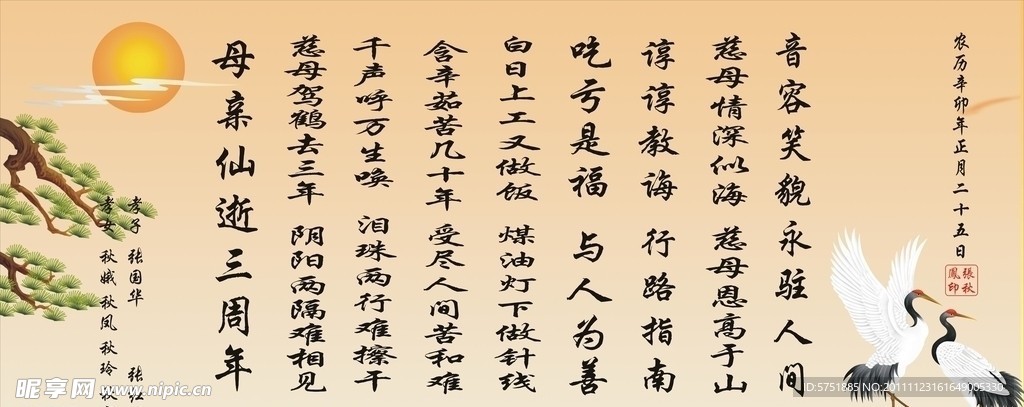 孝女 秋娥 秋凤 秋玲
孝子 张国华
母亲仙逝三周年
慈母驾鹤去三年 阴阳两隔难相见
千声呼万生唤 泪珠两行难擦干
含辛茹苦几十年 受尽人间苦和难
白日上工又做饭 煤油灯下做针线
吃亏是福 与人为善
谆谆教诲 行路指南
慈母情深似海 慈母恩高于山
音容笑貌永驻人间
农历辛卯年正月二十五日
張秋鳳印
昵享网 www.nipic.cn
ID:5751885 NO:20111123161649005330